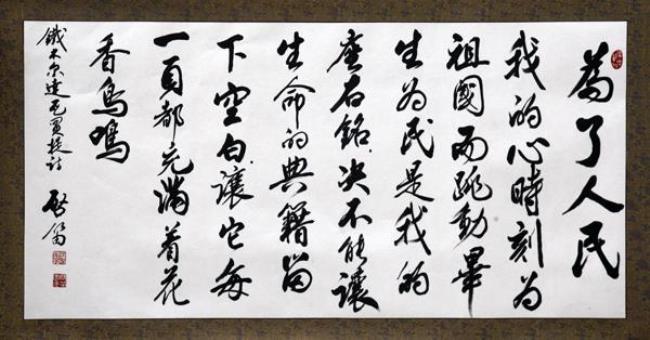 為了人民
我的心時刻为
祖國而跳動畢
生为民是我的
座右銘决不能讓
生命的典籍留
下空白讓它每
一頁都充滿着花
香鳥鳴
鐵木尔達瓦買提詩